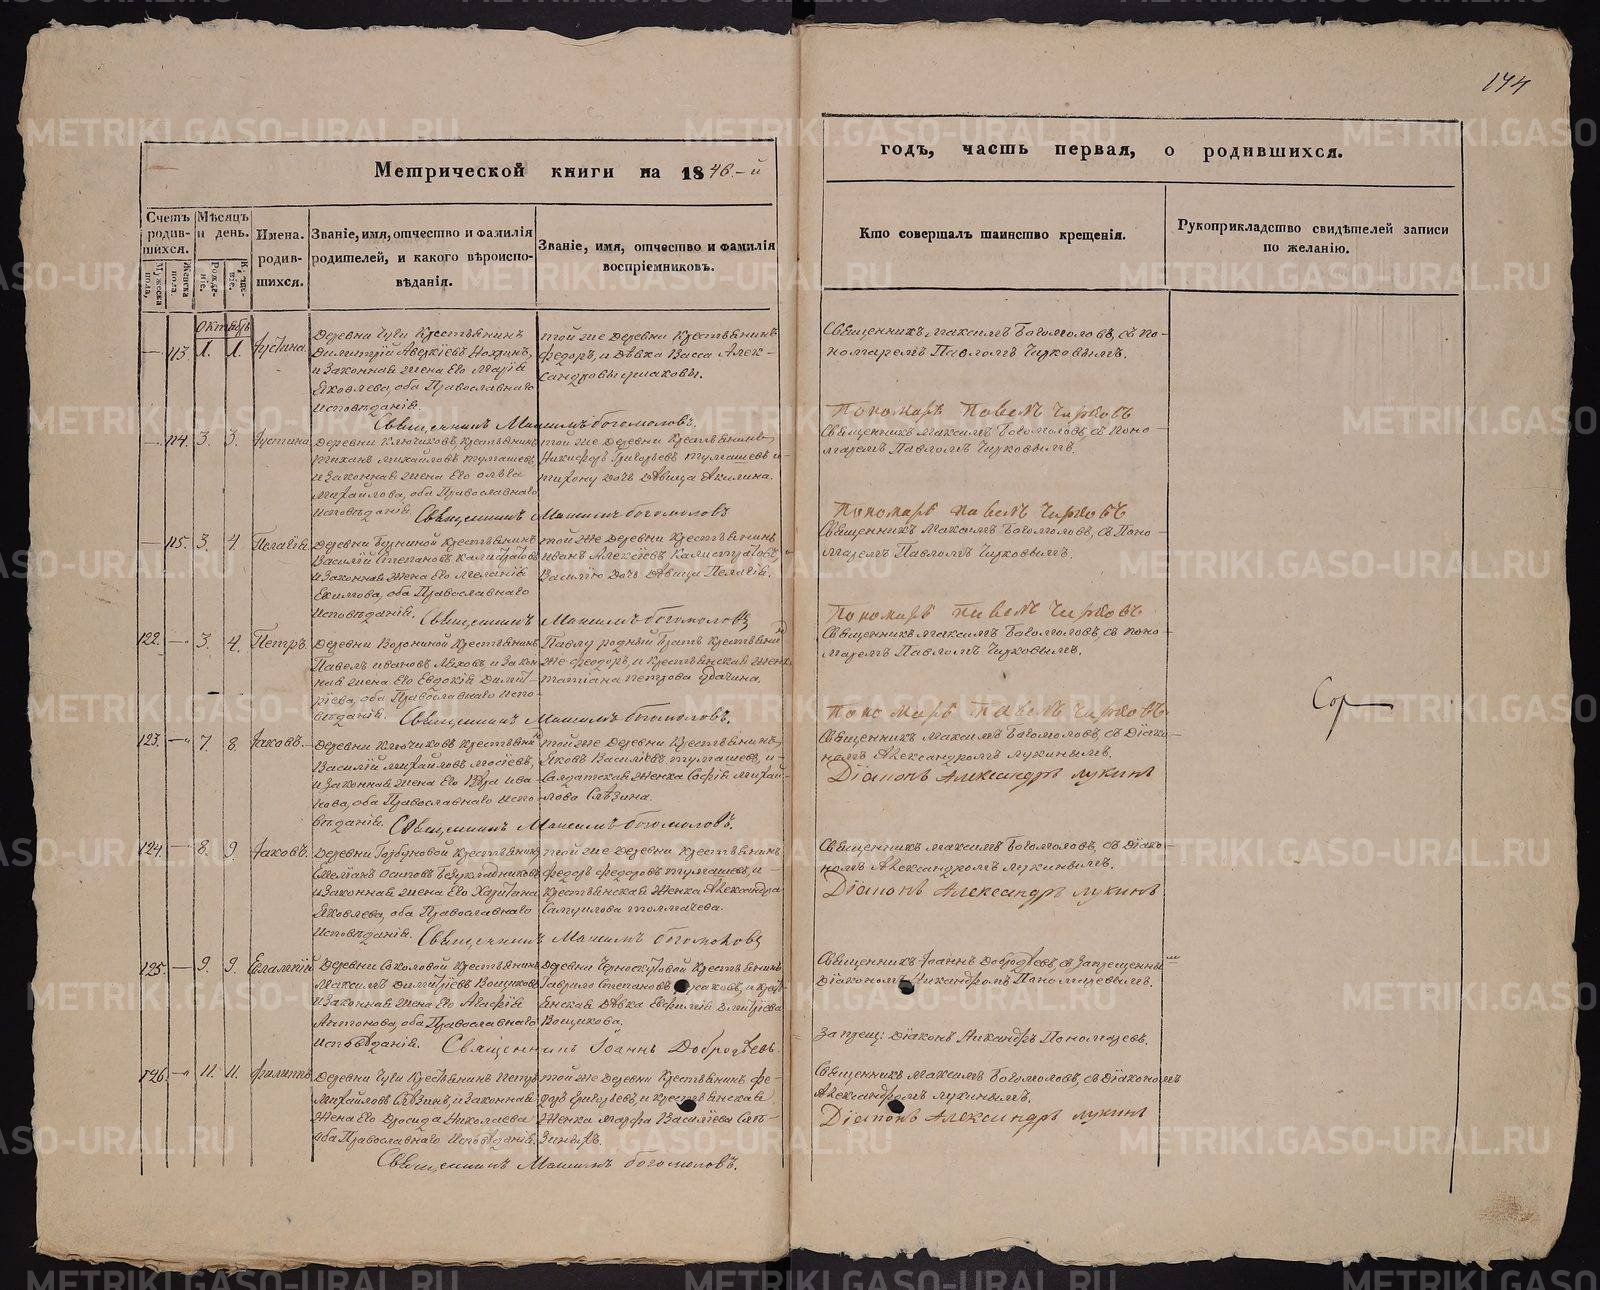 144
Метрической книги на 1846.-й
годъ, часть первая, о родившихся.
Счетъ родив-шихся.
Мужеска пола.
Женска пола.
Мѣсяцъ и день.
Рожде-ніе.
Креще-ніе.
Имена. родив-шихся.
Званіе, имя, отчество и фамилія родителей, и какого вѣроиспо-вѣданія.
Званіе, имя, отчество и фамилія воспріемниковъ.
Кто совершалъ таинство крещенія.
Рукоприкладство свидѣтелей записи по желанію.
Октябрь
113. 1. 1. Іустина.
Деревни Чуви Крестьянинъ
Димитрій Аверкіевъ
и Законная жена Его Марія
Яковлева, оба Православнаго
исповѣданія.
той же Деревни Крестьянинъ
Федоръ, и Дѣвка Васса Алек-
Священникъ Максимъ Богомоловъ, съ по-
номаремъ Павломъ Чирковымъ.
Священникъ Максимъ Богомоловъ.
Пономарь Павелъ Чирковъ
114. 3. 3. Іустина
Деревни Ключиковъ Крестьянинъ
Тихонъ Михайловъ Тумашевъ,
и Законная жена Его
Михайлова, оба Православнаго
исповѣданія.
той же Деревни Крестьянинъ
Никифоръ Григорьевъ Тумашевъ и
Тихону дочь Дѣвица Акилина.
Священникъ Максимъ Богомоловъ, съ Поно-
маремъ Павломъ Чирковымъ.
Священникъ Максимъ Богомоловъ
Пономарь Павелъ Чирковъ
115. 3. 4. Пелагія
Василій Степановъ Калистратовъ
и Законная жена Его Меланія
Екимова, оба Православнаго
исповѣданія.
той же Деревни Крестьянинъ
Иванъ Алексѣевъ Калистратовъ, и
Василію дочь Дѣвица Пелагія.
Священникъ Максимъ Богомоловъ, съ Поно-
маремъ Павломъ Чирковымъ.
Священникъ Максимъ Богомоловъ
Пономарь Павелъ Чирковъ
122. 3. 4. Петръ.
Деревни Ворониной Крестьянинъ
Павелъ Ивановъ Ляховъ и Закон
ная жена Его Евдокія Димит-
ріева, оба Православнаго испо-
вѣданія.
Павлу родный братъ Крестьянинъ
же Феодоръ, и Крестьянская Женка
Татіана Петрова
Священникъ Максимъ Богомоловъ, съ поно-
маремъ Павломъ Чирковымъ.
Священникъ Максимъ Богомоловъ.
Пономарь Павелъ Чирковъ
123. 7. 8. Іаковъ.
Деревни Ключиковъ Крестьянинъ
Василій Михайловъ
и Законная жена Его Вѣра Ива-
нова, оба Православнаго испо-
вѣданія.
той же Деревни Крестьянинъ
Яковъ Васильевъ Тумашевъ, и
Салдатская Женка Софія Михай-
лова
Священникъ Максимъ Богомоловъ, съ Діако-
номъ Александромъ Лукинымъ.
Діаконъ Александръ Лукинъ
Священникъ Максимъ Богомоловъ.
124. 8. 9. Іаковъ.
Деревни Горбуновой Крестьянинъ
Емелianъ Осиповъ
и Законная жена Его Харитина
Яковлева, оба Православнаго
исповѣданія.
той же Деревни Крестьянинъ
Федоръ Федоровъ Тумашевъ, и
Крестьянская Женка Александра
Толмачева.
Священникъ Максимъ Богомоловъ, съ Діако-
номъ Александромъ Лукинымъ.
Діаконъ Александръ Лукинъ
Священникъ Максимъ Богомоловъ
125. 9. 9. Евлампій
Деревни Соколовой Крестьянинъ
Максимъ Димитріевъ Вощиковъ
и Законная жена Его Агафія
Антонова, оба Православнаго
исповѣданія.
Деревни Черноскутовой Крестьянинъ
Гаврило Степановъ
Дѣвка Евфимія Дмитріева
Вощикова.
Священникъ Іоаннъ Добродѣевъ, съ Запрещеннымъ
Діакономъ Никандромъ Пономаревымъ.
Запрещ: Діаконъ Никандръ Пономаревъ.
Священникъ Іоаннъ Добродѣевъ
126. 11. 11. Филиппъ.
Деревни Чуви Крестьянинъ Петръ
Михайловъ и Законная
Жена Его Дросида Николаева
оба Православнаго исповѣданія.
той же Деревни Крестьянинъ Фе-
доръ Григорьевъ, и Крестьянская
Женка Марфа Васильева
Священникъ Максимъ Богомоловъ, съ Діакономъ
Александромъ Лукинымъ.
Діаконъ Александръ Лукинъ
Священникъ Максимъ Богомоловъ.
METRIKI.GASO-URAL.RU